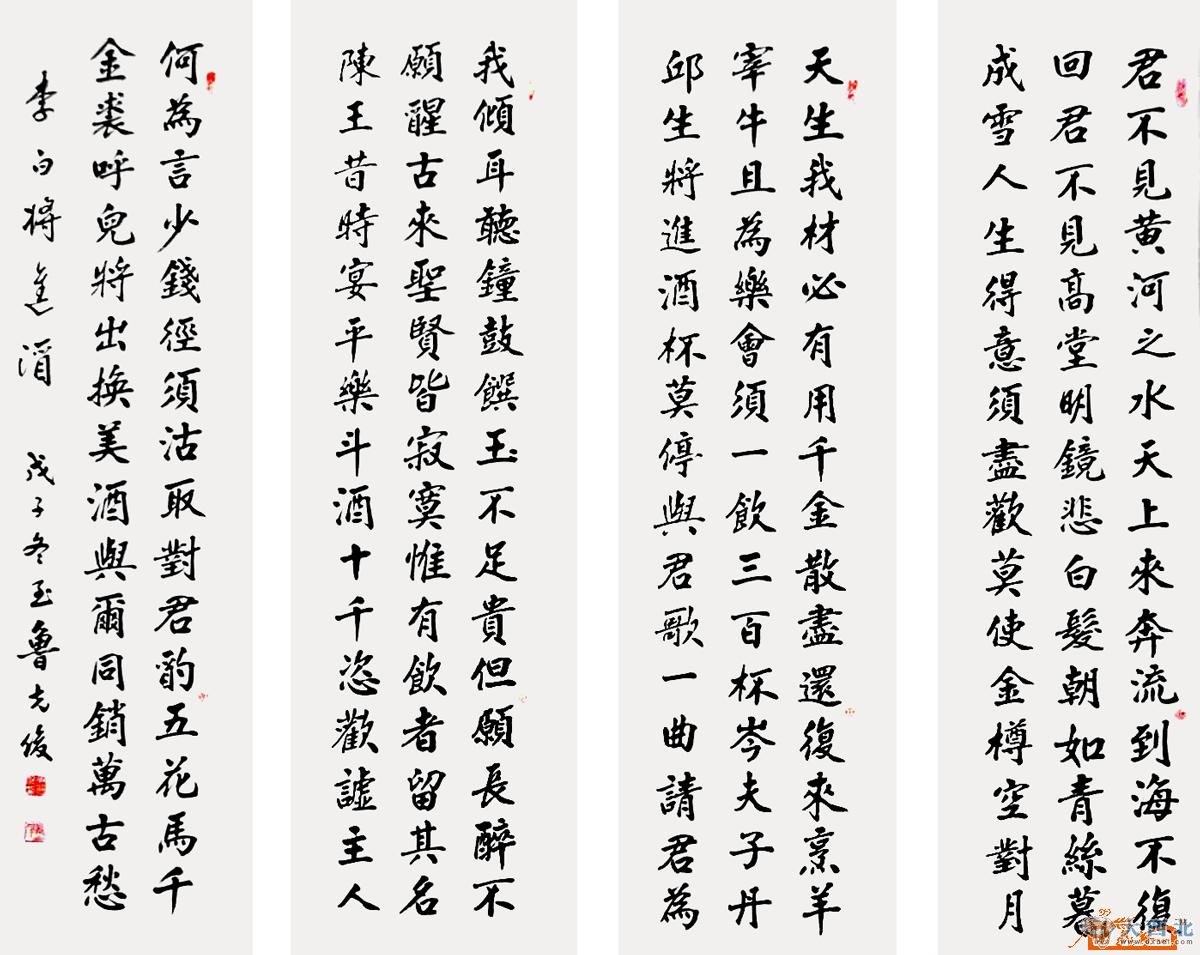 君不見黄河之水天上來奔流到海不復
回君不見高堂明鏡悲白髮朝如青絲暮
成雪人生得意須盡歡莫使金樽空對月
天生我材必有用千金散盡還復來烹羊
宰牛且為樂會須一飲三百杯岑夫子丹
邱生將進酒杯莫停與君歌一曲請君為
我傾耳聽鐘鼓饌玉不足貴但願長醉不
願醒古來聖賢皆寂寞惟有飲者留其名
陳王昔時宴平樂斗酒十千恣歡謔主人
何為言少錢徑須沽取對君酌五花馬千
金裘呼兒將出換美酒與爾同銷萬古愁
李白將進酒 戊子冬玉魯俊
大西北